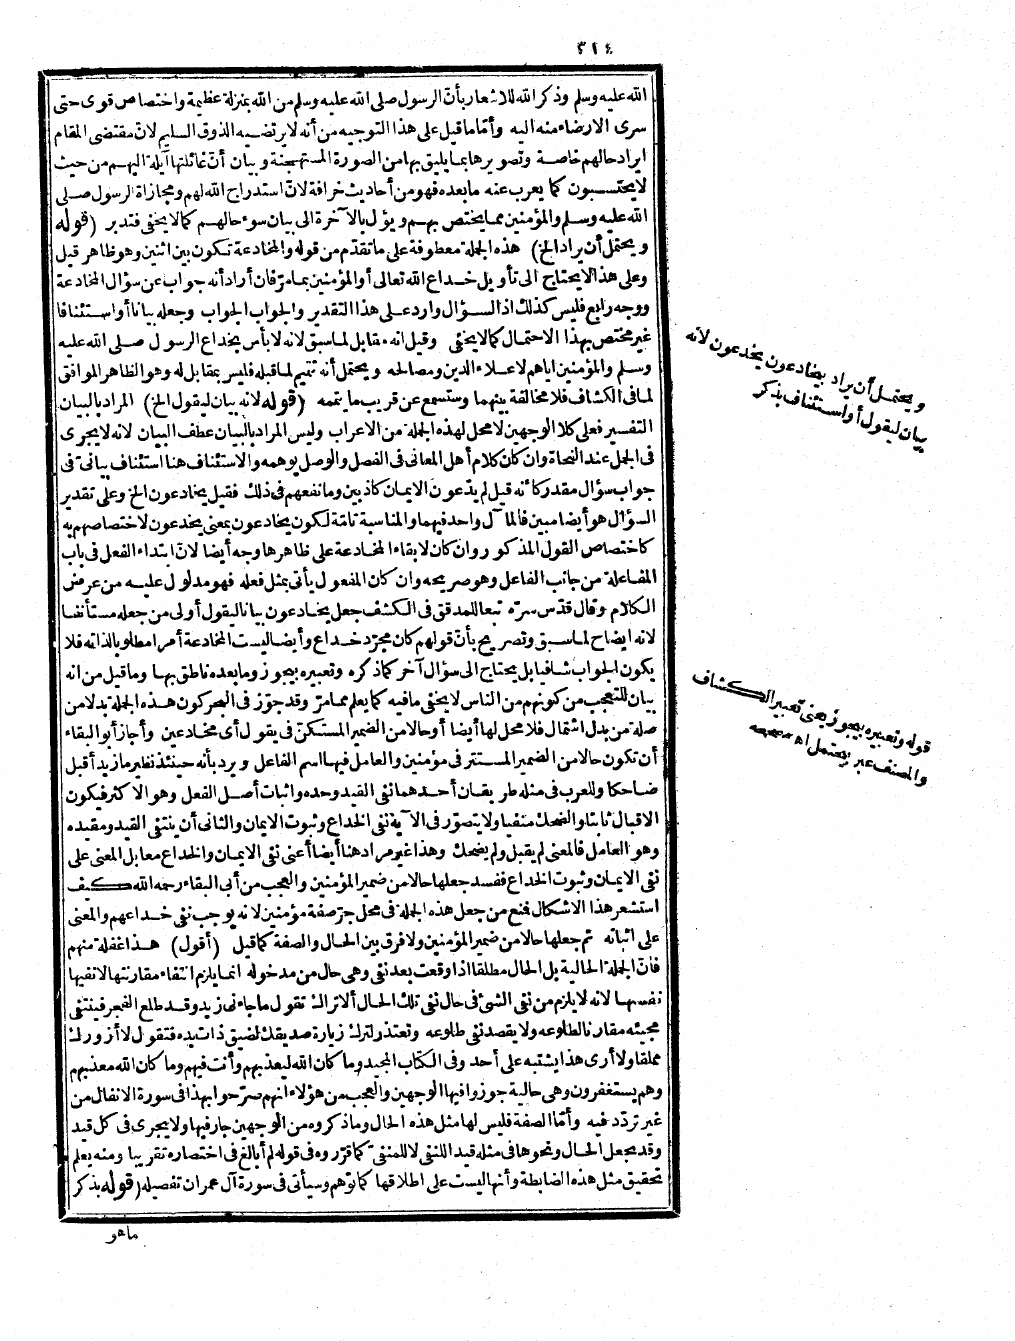 ٣١٤
الله عليه وسلم وذكر الله للاشعار بأن الرسول صلى الله عليه وسلم من الله بمنزلة عظيمة واختصاص قوى حتى
سرى الارضاء منه اليه وأما ما قيل على هذا التوجيه من أنه لا يرتضيه الذوق السليم لان مقتضى المقام
ايراد حالهم خاصة وتصويرها بما يليق بها من الصورة المستهجنة وبيان أن غائلتها آيلة اليهم من حيث
لا يحتسبون كما يعرب عنه ما بعده فهو من أحاديث خرافة لان استدراج الله لهم ومجازاة الرسول صلى
الله عليه وسلم والمؤمنين مما يختص بهم ويؤل بالآخرة الى بيان سوء حالهم كما لا يخفى فتدبر (قوله
ويحتمل أن يراد الخ) هذه الجملة معطوفة على ما تقدم من قوله والمخادعة تكون بين اثنين وهو ظاهر قيل
وعلى هذا لا يحتاج الى تأويل خداع الله تعالى أو المؤمنين بما مر فان أراد أنه جواب عن سؤال المخادعة
ووجه رابع فليس كذلك اذ السؤال وارد على هذا التقدير والجواب الجواب وجعله بيانا أو استئنافا
غير مختص بهذا الاحتمال كما لا يخفى وقيل انه مقابل لما سبق لانه لا بأس بخداع الرسول صلى الله عليه
وسلم والمؤمنين اياهم لاعلاء الدين ومصالحه ويحتمل أنه تتميم لما قبله فليس بمقابل له وهو الظاهر الموافق
لما فى الكشاف فلا مخالفة بينهما وستسمع عن قريب ما يتممه (قوله لانه بيان ليقول الخ) المراد بالبيان
التفسير فعلى كلا الوجهين لا محل لهذه الجملة من الاعراب وليس المراد بالبيان عطف البيان لانه لا يجرى
فى الجمل عند النحاة وان كان كلام أهل المعانى فى الفصل والوصل يوهمه والاستئناف هنا استئناف بيانى فى
جواب سؤال مقدر كأنه قيل لم يدعون الايمان كاذبين وما نفعهم فى ذلك فقيل يخادعون الخ وعلى تقدير
السؤال هو أيضا مبين فالمآل واحد فيهما والمناسبة تامة لكون يخادعون بمعنى يخدعون لاختصاصهم به
كاختصاص القول المذكور وان كان لابقاء المخادعة على ظاهرها وجه أيضا لان ابتداء الفعل فى باب
المفاعلة من جانب الفاعل وهو صريحه وان كان المفعول يأتى بمثل فعله فهو مدلول عليه من عرض
الكلام وقال قدس سره تبعا للمدقق فى الكشف جعل يخادعون بيانا ليقول أولى من جعله مستأنفا
لانه ايضاح لما سبق وتصريح بأن قولهم كان مجرد خداع وأيضا ليست المخادعة أمرا مطلوبا لذاته فلا
يكون الجواب شافيا بل يحتاج الى سؤال آخر كما ذكره وتعبيره بيجوز وما بعده ناطق بها وما قيل من انه
بيان للتعجب من كونهم من الناس لا يخفى ما فيه كما يعلم مما مر وقد جوز فى البحر كون هذه الجملة بدلا من
صلة من بدل اشتمال فلا محل لها أيضا أو حالا من الضمير المستكن فى يقول أى مخادعين وأجاز أبو البقاء
أن تكون حالا من الضمير المستتر فى مؤمنين والعامل فيها اسم الفاعل ورد بأنه حينئذ نظير ما زيد أقبل
ضاحكا وللعرب فى مثله طريقان أحدهما نفى القيد وحده واثبات أصل الفعل وهو الاكثر فيكون
الاقبال ثابتا والضحك منفيا ولا يتصور فى الآية نفى الخداع وثبوت الايمان والثانى أن ينتفى القيد ومقيده
وهو العامل فالمعنى لم يقبل ولم يضحك وهذا غير مراد هنا أيضا أعنى نفى الايمان والخداع معا بل المعنى على
نفى الايمان وثبوت الخداع ففسد جعلها حالا من ضمير المؤمنين والعجب من أبى البقاء رحمه الله كيف
استشعر هذا الاشكال فمنع من جعل هذه الجملة فى محل جر صفة مؤمنين لانه يوجب نفى خداعهم والمعنى
على اثباته ثم جعلها حالا من ضمير المؤمنين ولا فرق بين الحال والصفة كما قيل (أقول) هذا غفلة منهم
فان الجملة الحالية بل الحال مطلقا اذا وقعت بعد نفى وهى حال من مدخوله انما يلزم انتفاء مقارنتها لا نفيها
نفسها لانه لا يلزم من نفى الشئ فى حال نفى تلك الحال ألا تراك تقول ما جاءنى زيد وقد طلع الفجر فينتفى
مجيئه مقارنا لطلوعه ولا يقصد نفى طلوعه وتعتذر لترك زيارة صديقك لضيق ذات يده فتقول لا أزورك
مملقا ولا أرى هذا يشتبه على أحد وفى الكتاب المجيد وما كان الله ليعذبهم وأنت فيهم وما كان الله معذبهم
وهم يستغفرون وهى حالية جوزوا فيها الوجهين والعجب من هؤلاء انهم صرحوا بهذا فى سورة الانفال من
غير تردد فيه وأما الصفة فليس لها مثل هذه الحال وما ذكروه من الوجهين جار فيها ولا يجرى فى كل قيد
وقد يجعل الحال ونحوها فى مثله قيدا للنفى لا للمنفى كما قرروه فى قوله لم أبالغ فى اختصاره تقريبا ومنه يعلم
تحقيق مثل هذه الضابطة وأنها ليست على اطلاقها كما توهم وسيأتى فى سورة آل عمران تفصيله (قوله بذكر
ما هو
ويحتمل أن يراد بيخادعون يخدعون لانه
بيان ليقول أو استئناف بذكر
قوله وتعبيره بيجوز يعنى تعبير الكشاف
والمصنف عبر بيحتمل اه مصححه